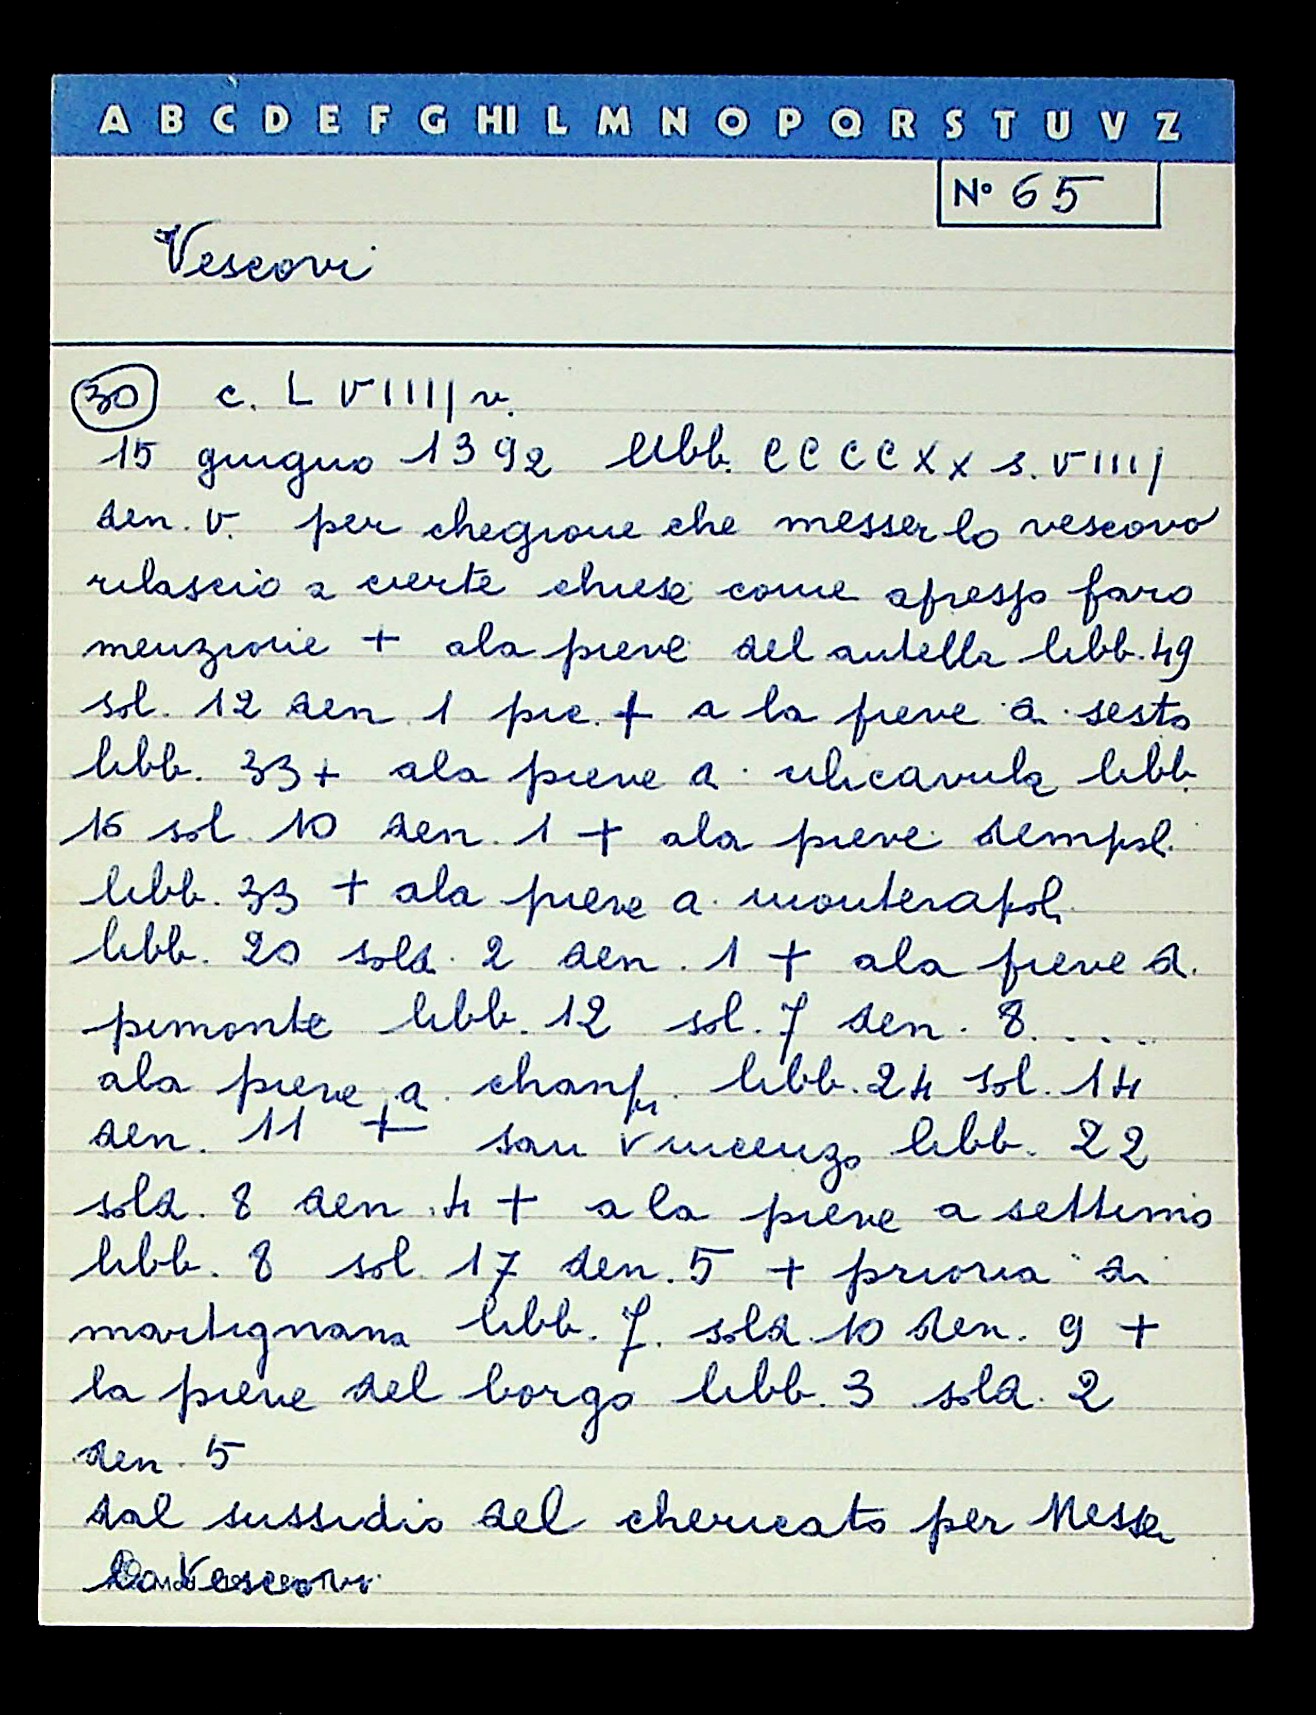 A B C D E F G HI L M N O P Q R S T U V Z
N° 65
Vescovi
30 c. L VIIII v.
15 giugno 1392 libb. CCCCXX s. VIIII
den. V. per chegione che messer lo vescovo
rilascio a cierte chiese come apresso faro
menzione + ala pieve del antella libb. 49
sol. 12 den. 1 pic. + a la pieve a sesto
libb. 33 + ala pieve a ulicavula libb.
16 sol. 10 den. 1 + ala pieve dempol.
libb. 33 + ala pieve a monterapoli
libb. 20 sold. 2 den. 1 + ala pieve a
pimonte libb. 12 sol. 7 den. 8 ....
ala pieve a champi. libb. 24 sol. 14
den. 11 + san Vincenzo libb. 22
sold. 8 den. 4 + a la pieve a settimo
libb. 8 sol. 17 den. 5 + prioria di
martignana libb. 7. sold. 10 den. 9 +
la pieve del borgo libb. 3 sold. 2
den. 5
dal sussidio del chericato per Messer
Vescovi